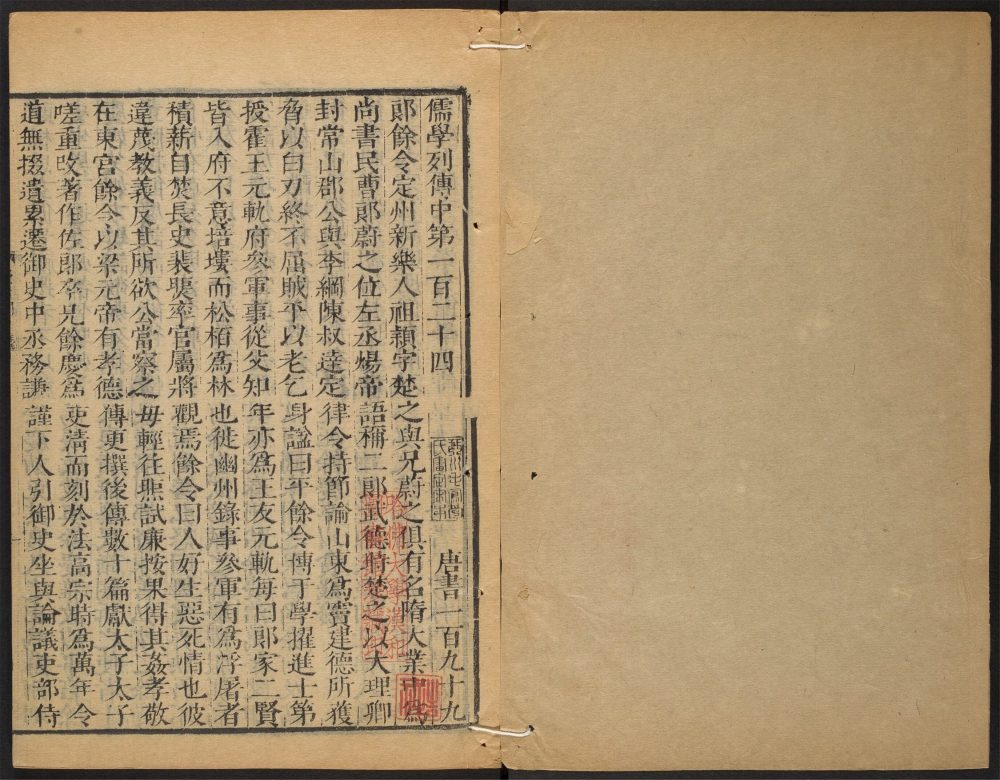 儒學列傳中第一百二十四 唐書一百九十九
郎餘令定州新樂人祖穎字楚之與兄蔚之俱有名隋大業中爲
尚書民曹郎蔚之位左丞煬帝語稱二郎武德時楚之以大理卿
封常山郡公與李綱陳叔達定律令持節諭山東爲竇建德所獲
脅以白刃終不屈賊平以老乞身諡曰平餘令博于學擢進士第
授霍王元軌府參軍事從父知年亦爲王友元軌每曰郎家二賢
皆入府不意培塿而松栢爲林也徙幽州錄事參軍有爲浮屠者
積薪自焚長史裴煚率官屬將觀焉餘令曰人好生惡死情也彼
違蔑教義反其所欲公當察之毋輕往煚試廉按果得其姦孝敬
在東宮餘令以梁元帝有孝德傳更撰後傳數十篇獻太子太子
嗟重改著作佐郎卒兄餘慶爲吏清而刻於法高宗時爲萬年令
道無掇遺累遷御史中丞務謙謹下人引御史坐與論議吏部侍